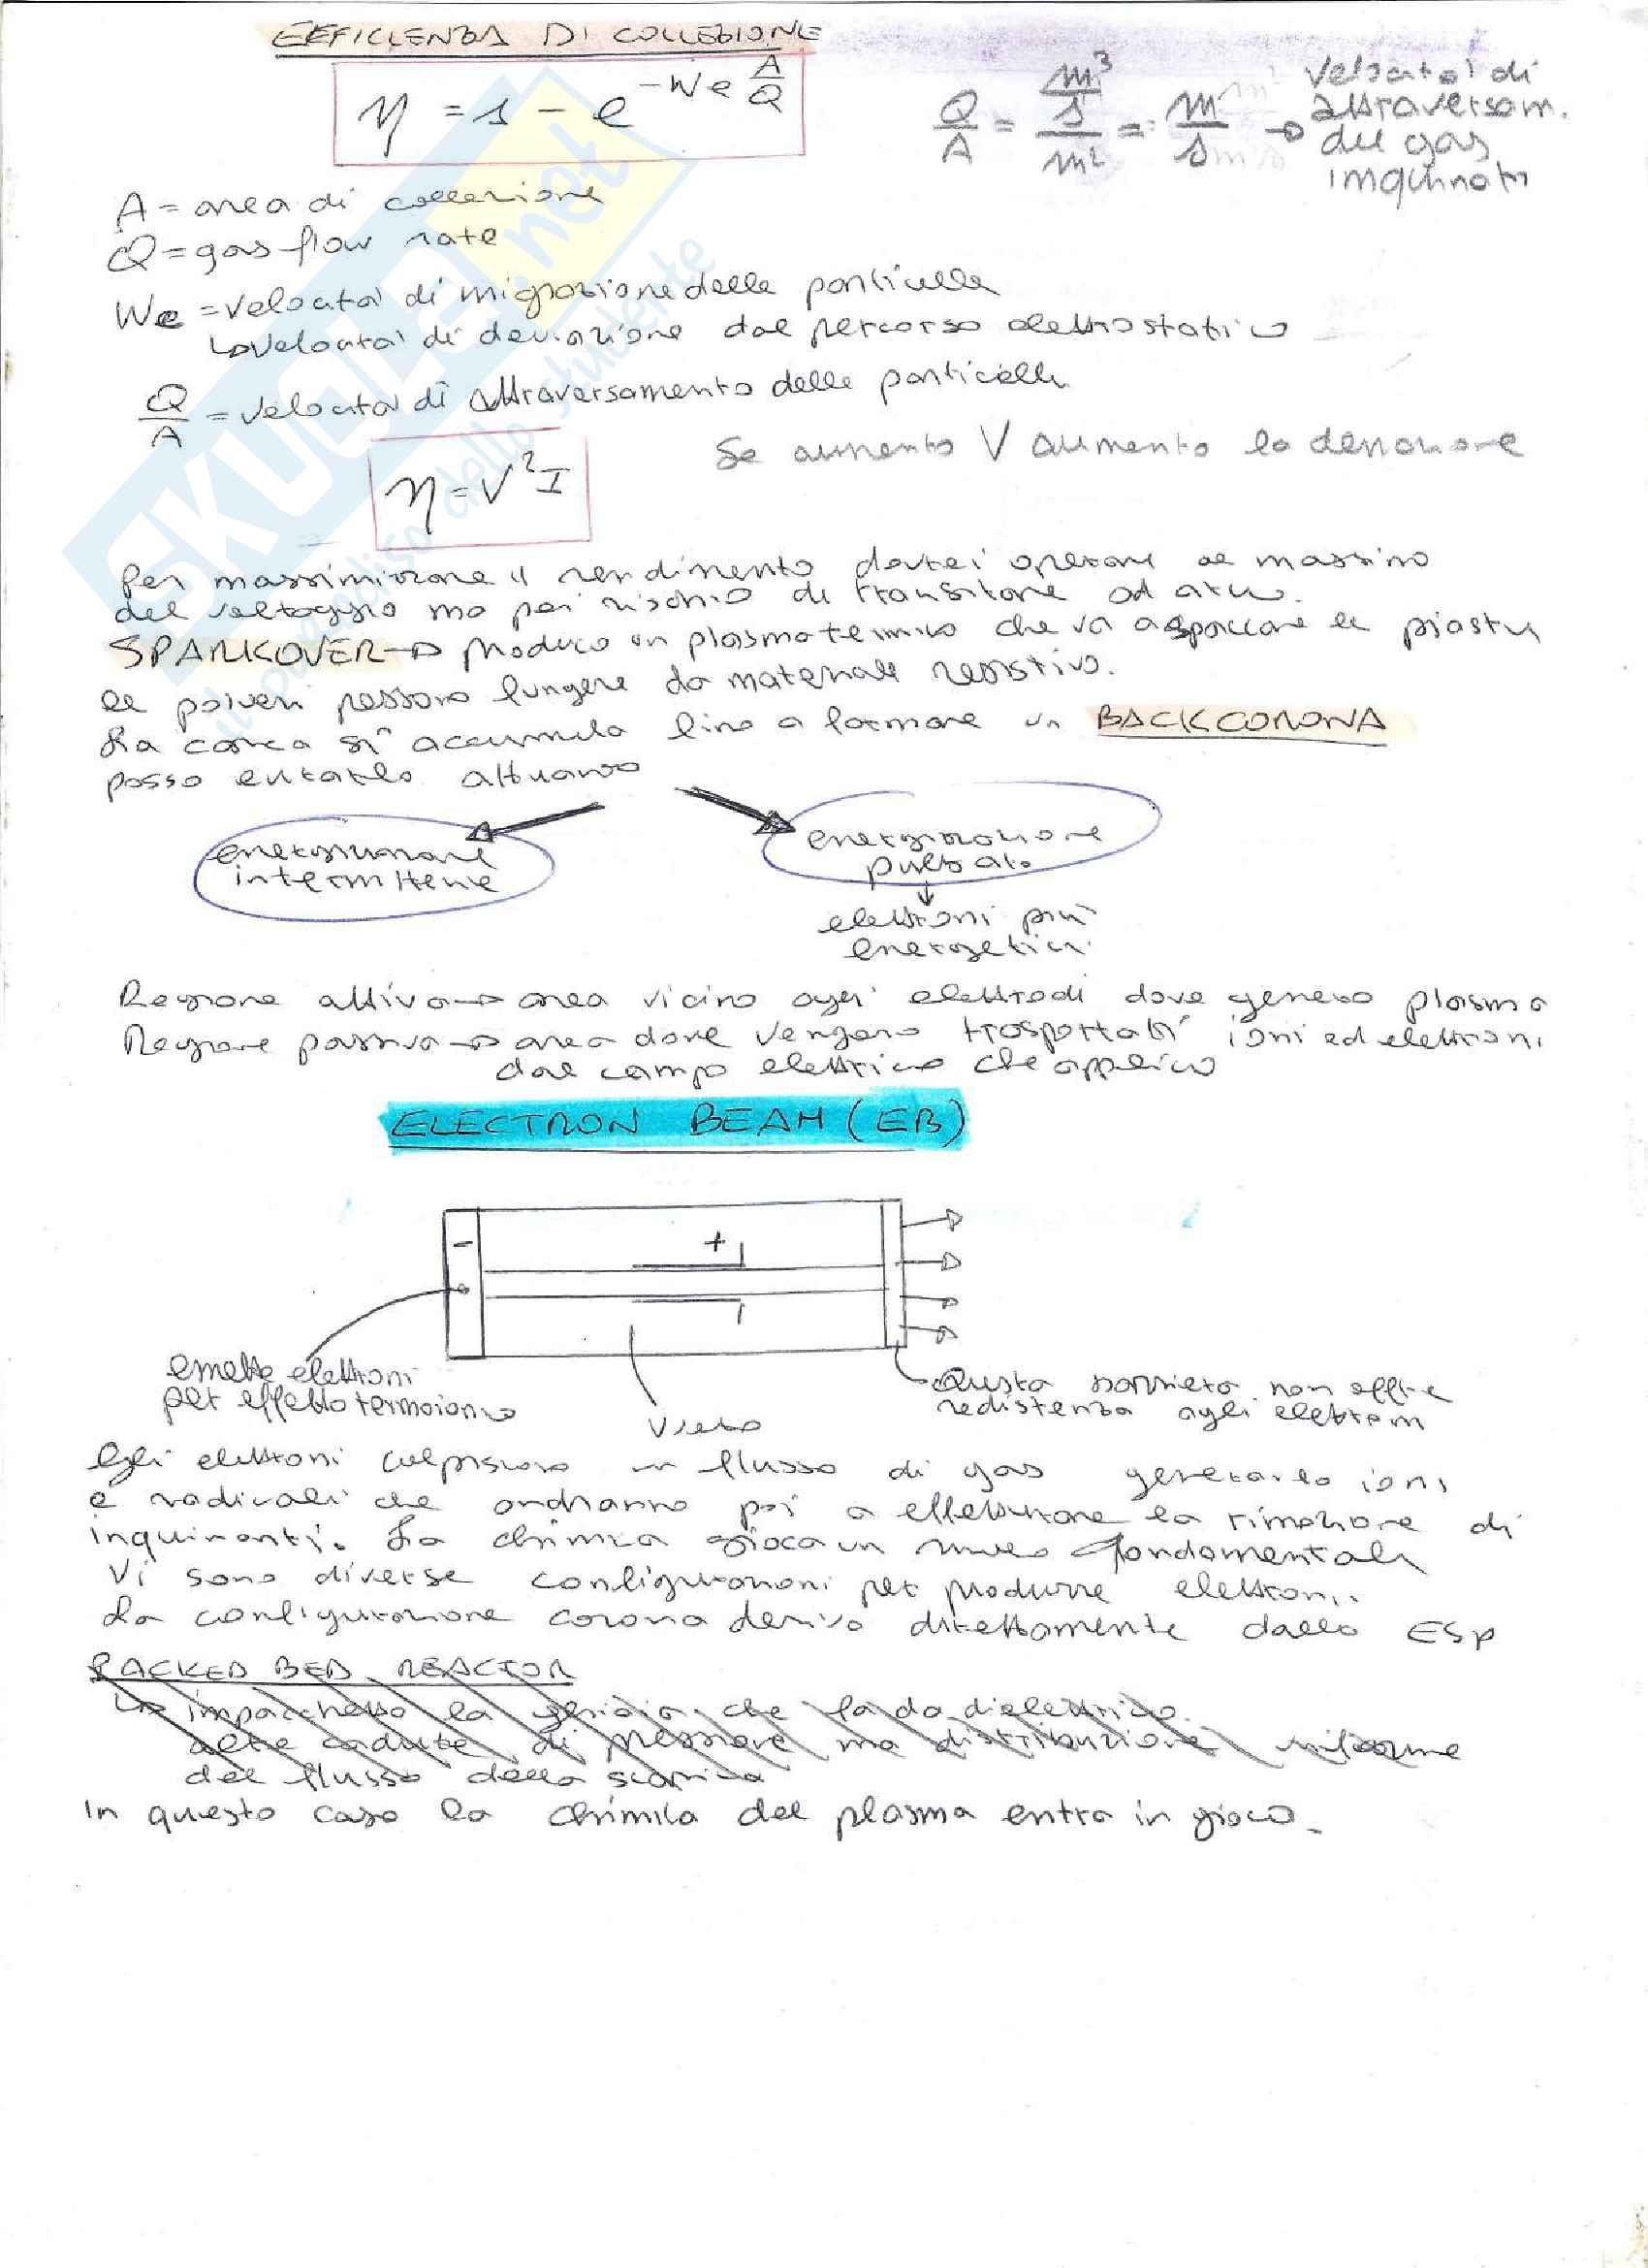 EFFICIENZA DI COLLEZIONE
η = 1 - e^(-We A/Q)
Q/A = (m³/s)/m² = m/s → velocità di
attraversam.
del gas
inquinati
A = area di collezione
Q = gas flow rate
We = velocità di migrazione delle particelle
↳ velocità di deviazione dal percorso elettrostatico
Q/A = velocità di attraversamento delle particelle
Se aumento V aumento la deviazione
η = V² I
Per massimizzare il rendimento dovrei operare al massimo
del voltaggio ma poi rischio di transitare ad arco.
SPARKOVER → produco un plasma termico che va a spaccare le piastre
le polveri possono fungere da materiale resistivo.
La carica si accumula fino a formare un BACKCORONA
posso evitarlo attuando
energizzazione
intermittente
energizzazione
pulsata
↓
elettroni più
energetici
Regione attiva → area vicino agli elettrodi dove genero plasma
Regione passiva → area dove vengono trasportati ioni ed elettroni
dal campo elettrico che applico
ELECTRON BEAM (EB)
-
+
emette elettroni
per effetto termoionico
vuoto
Questa barriera non offre
resistenza agli elettroni
Gli elettroni colpiscono un flusso di gas generando ioni
e radicali che andranno poi a effettuare la rimozione di
inquinanti. La chimica gioca un ruolo fondamentale
Vi sono diverse configurazioni per produrre elettroni.
La configurazione corona deriva direttamente dallo ESP
PACKED BED REACTOR
↳ impacchetto la che fa da dielettrico.
alte cadute di pressione ma distribuzione uniforme
del flusso della scarica
In questo caso la chimica del plasma entra in gioco.
SKUOLA.net
il paradiso dello studente